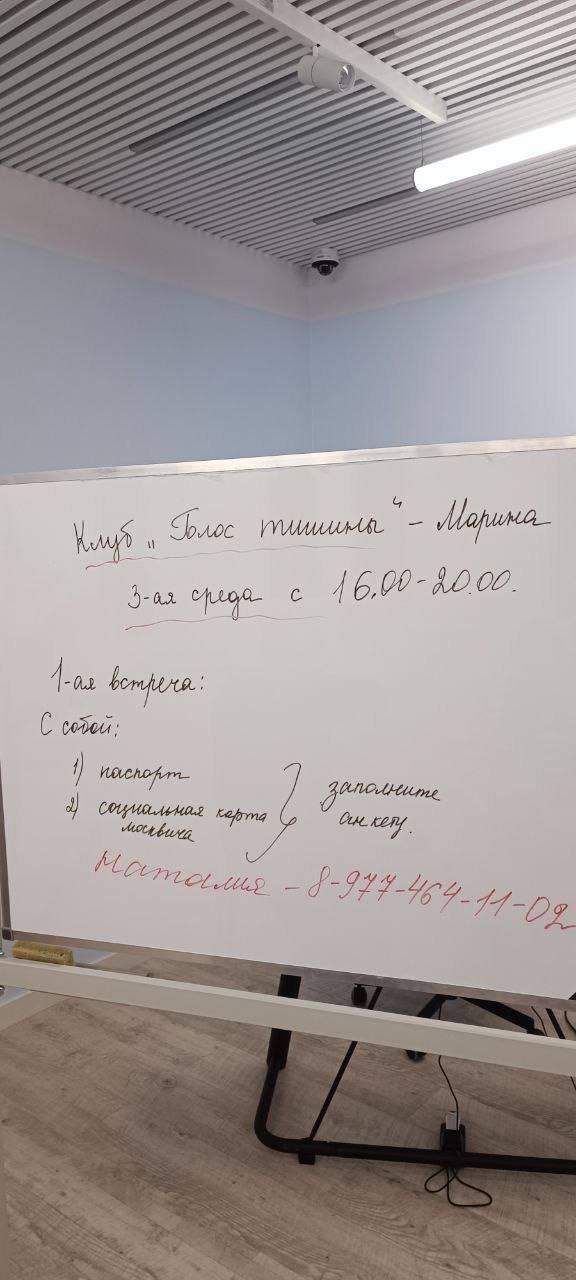 Клуб „Голос тишины“ – Марина
3-ая среда с 16.00-20.00.
1-ая встреча:
С собой:
1) паспорт
2) социальная карта москвича
заполните
анкету.
Наталия – 8-977-464-11-02